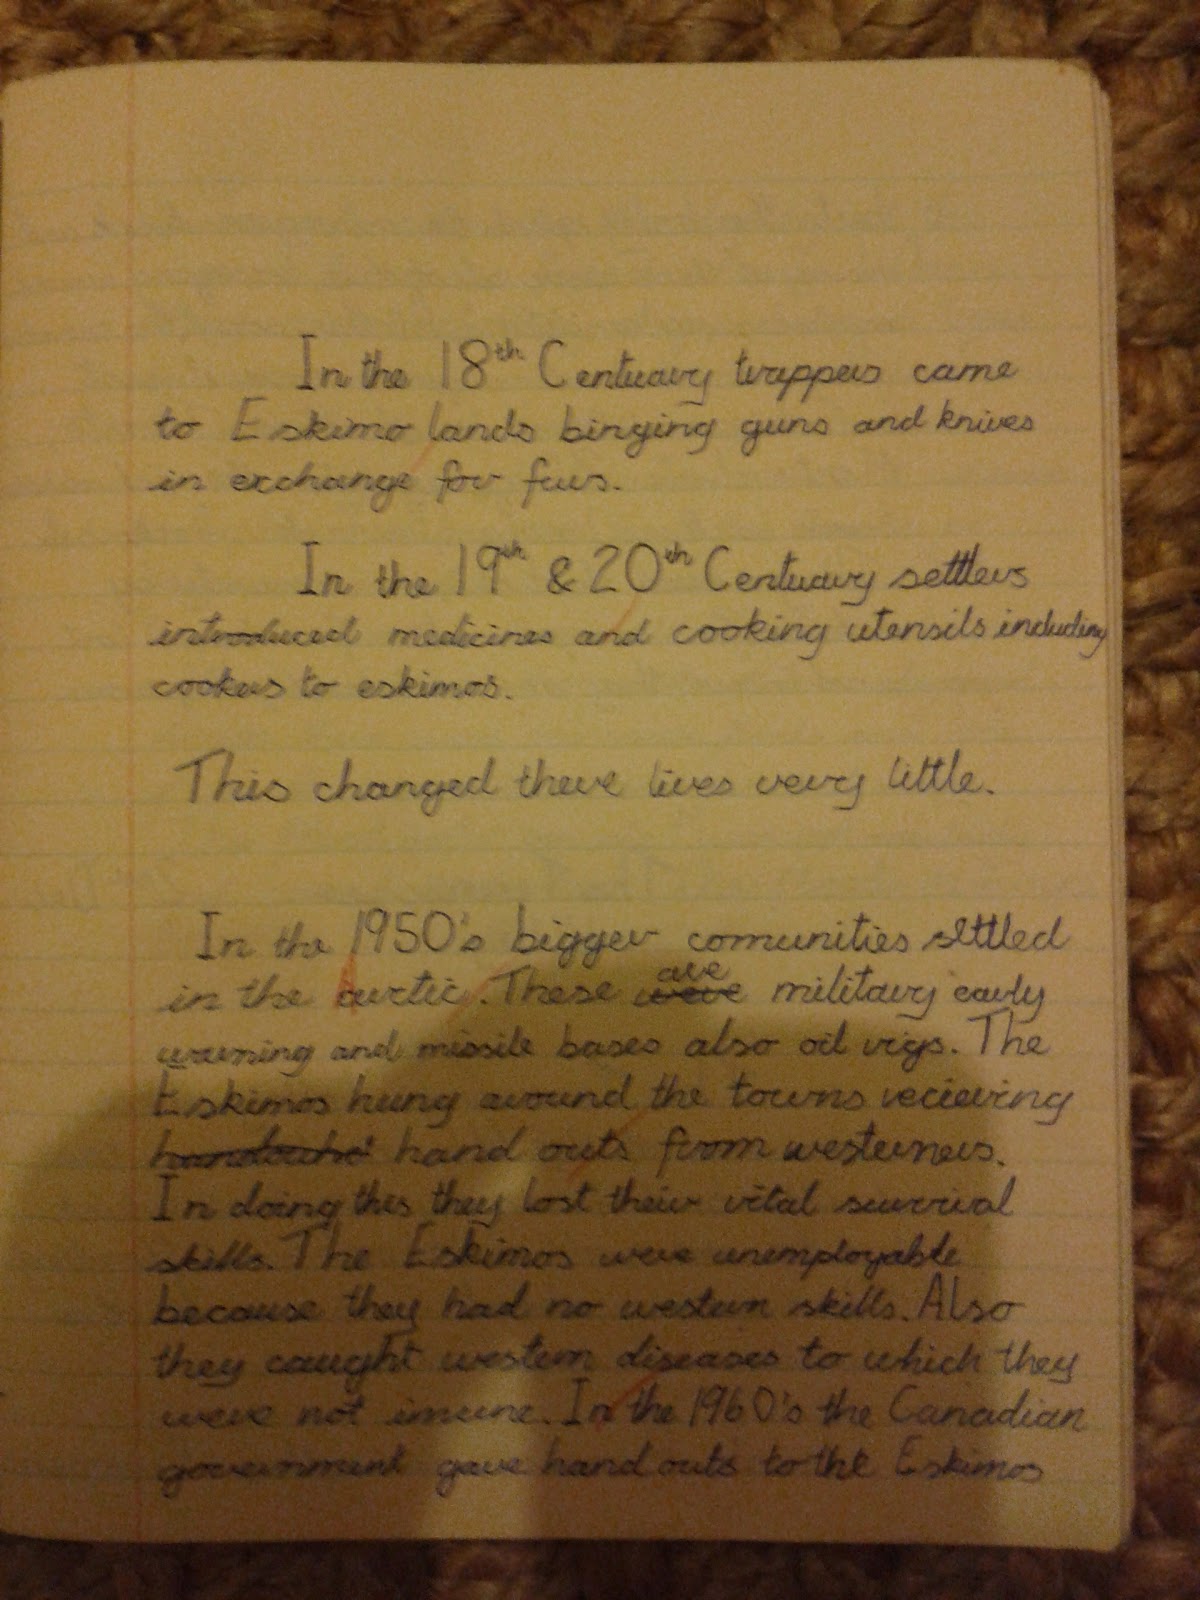 In the 18th Centuary trappers came
to Eskimo lands binging guns and knives
in exchange for furs.
In the 19th & 20th Centuary settlers
introduced medicines and cooking utensils including
cookers to eskimos.
This changed there lives very little.
In the 1950's bigger comunities settled
in the artic. These are military early
warning and missile bases also oil rigs. The
Eskimos hung around the towns recieving
hand outs from westerners.
In doing this they lost their vital survival
skills. The Eskimos were unemployable
because they had no western skills. Also
they caught western diseases to which they
were not imune. In the 1960's the Canadian
government gave hand outs to the Eskimos